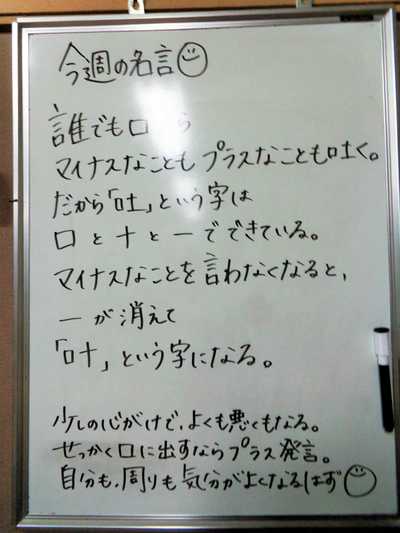 今週の名言
誰でも口 ら
マイナスなことも プラスなことも吐く。
だから「吐」という字は
口と十と一でできている。
マイナスなことを言わなくなると、
一が消えて
「叶」という字になる。
少しの心がけで、よくも悪くもなる。
せっかく口に出すならプラス発言。
自分も、周りも気分がよくなるはず